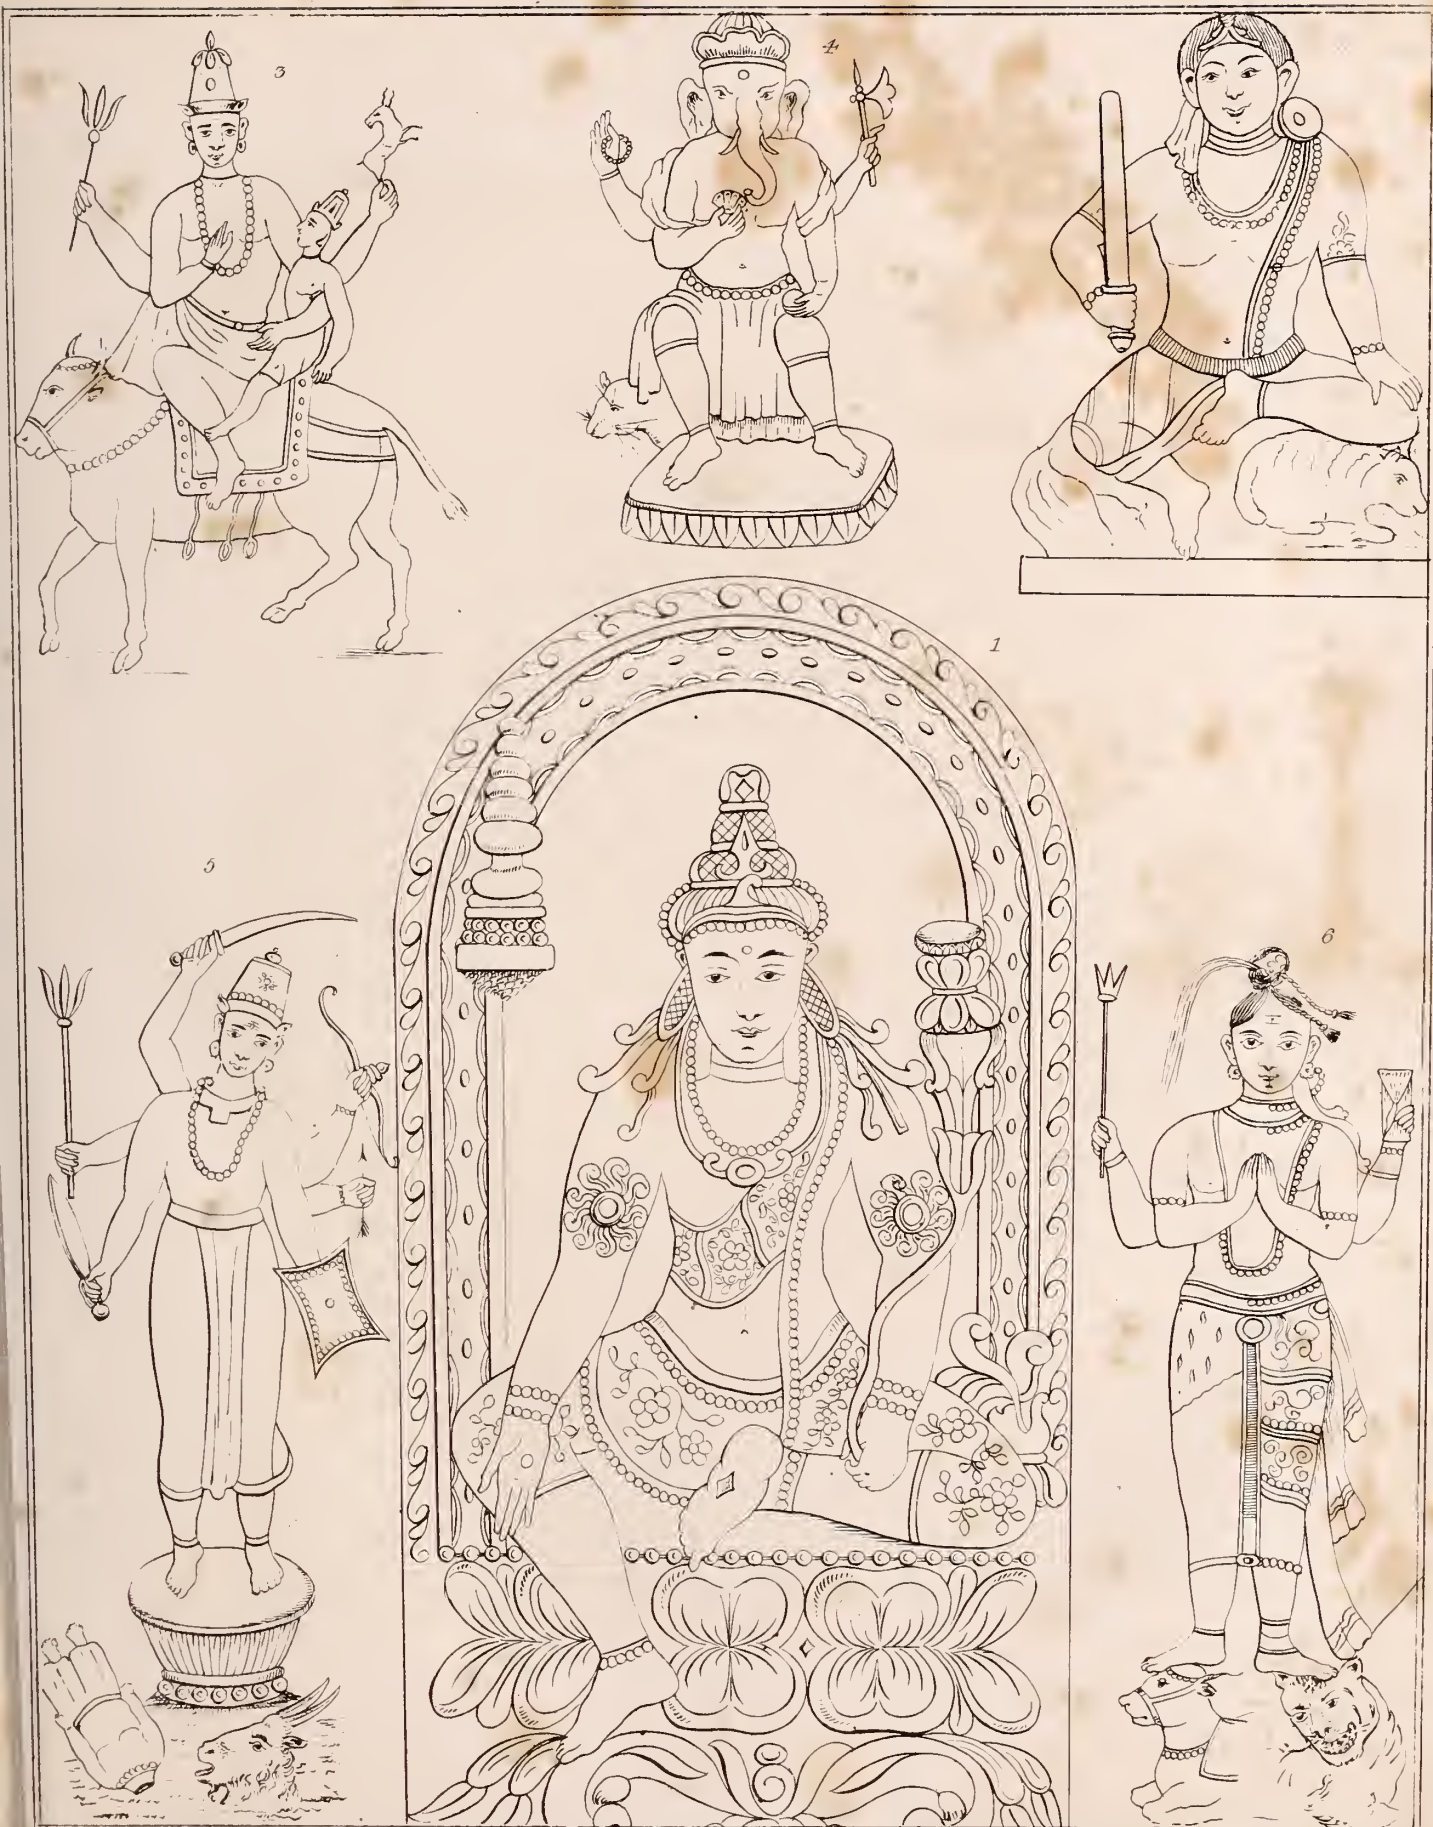 3
4
1
5
6